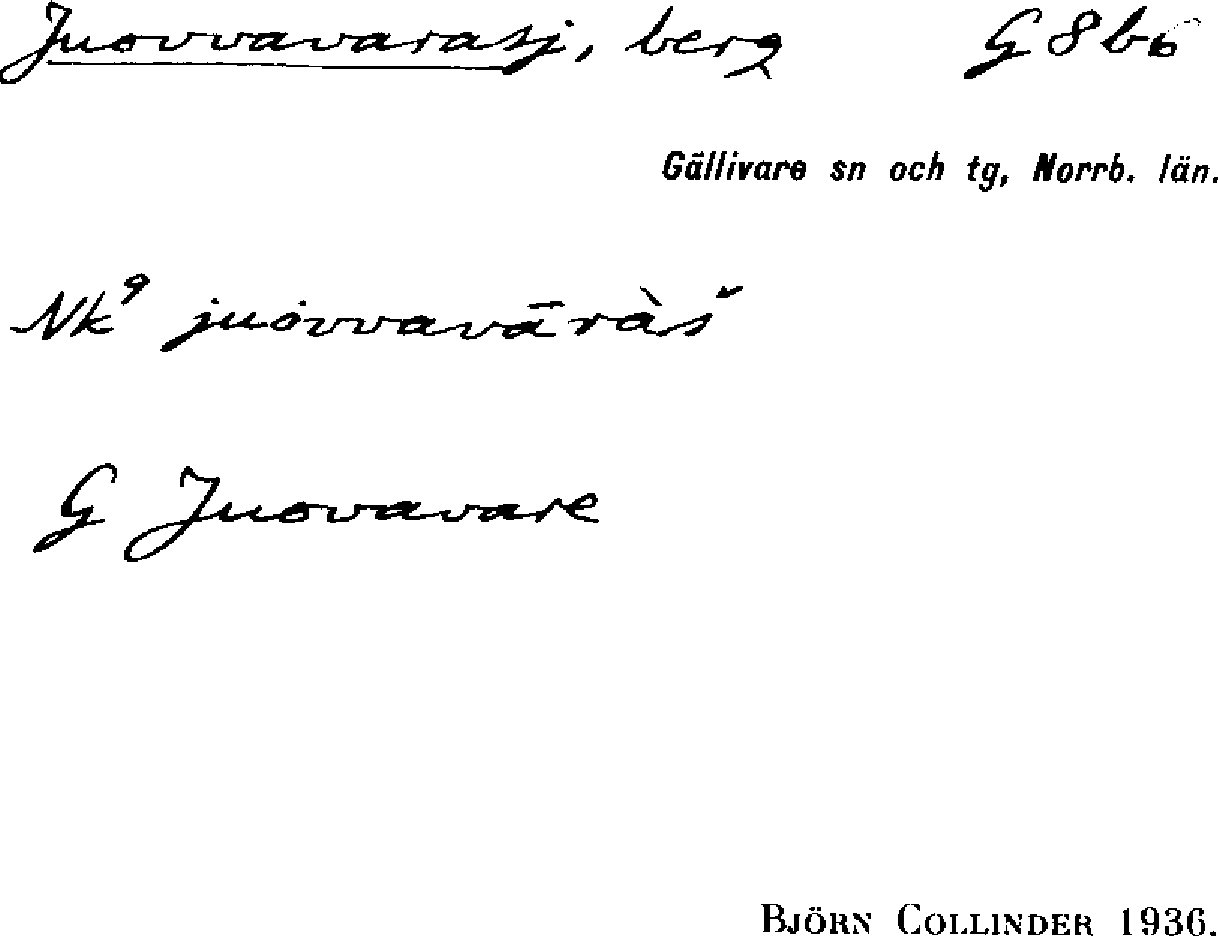 Juovvavarasj, berg G8b6
Gällivare sn och tg, Norrb. län.
Nk⁹ juovvavāràš
G Juovavare
BJÖRN COLLINDER 1936.